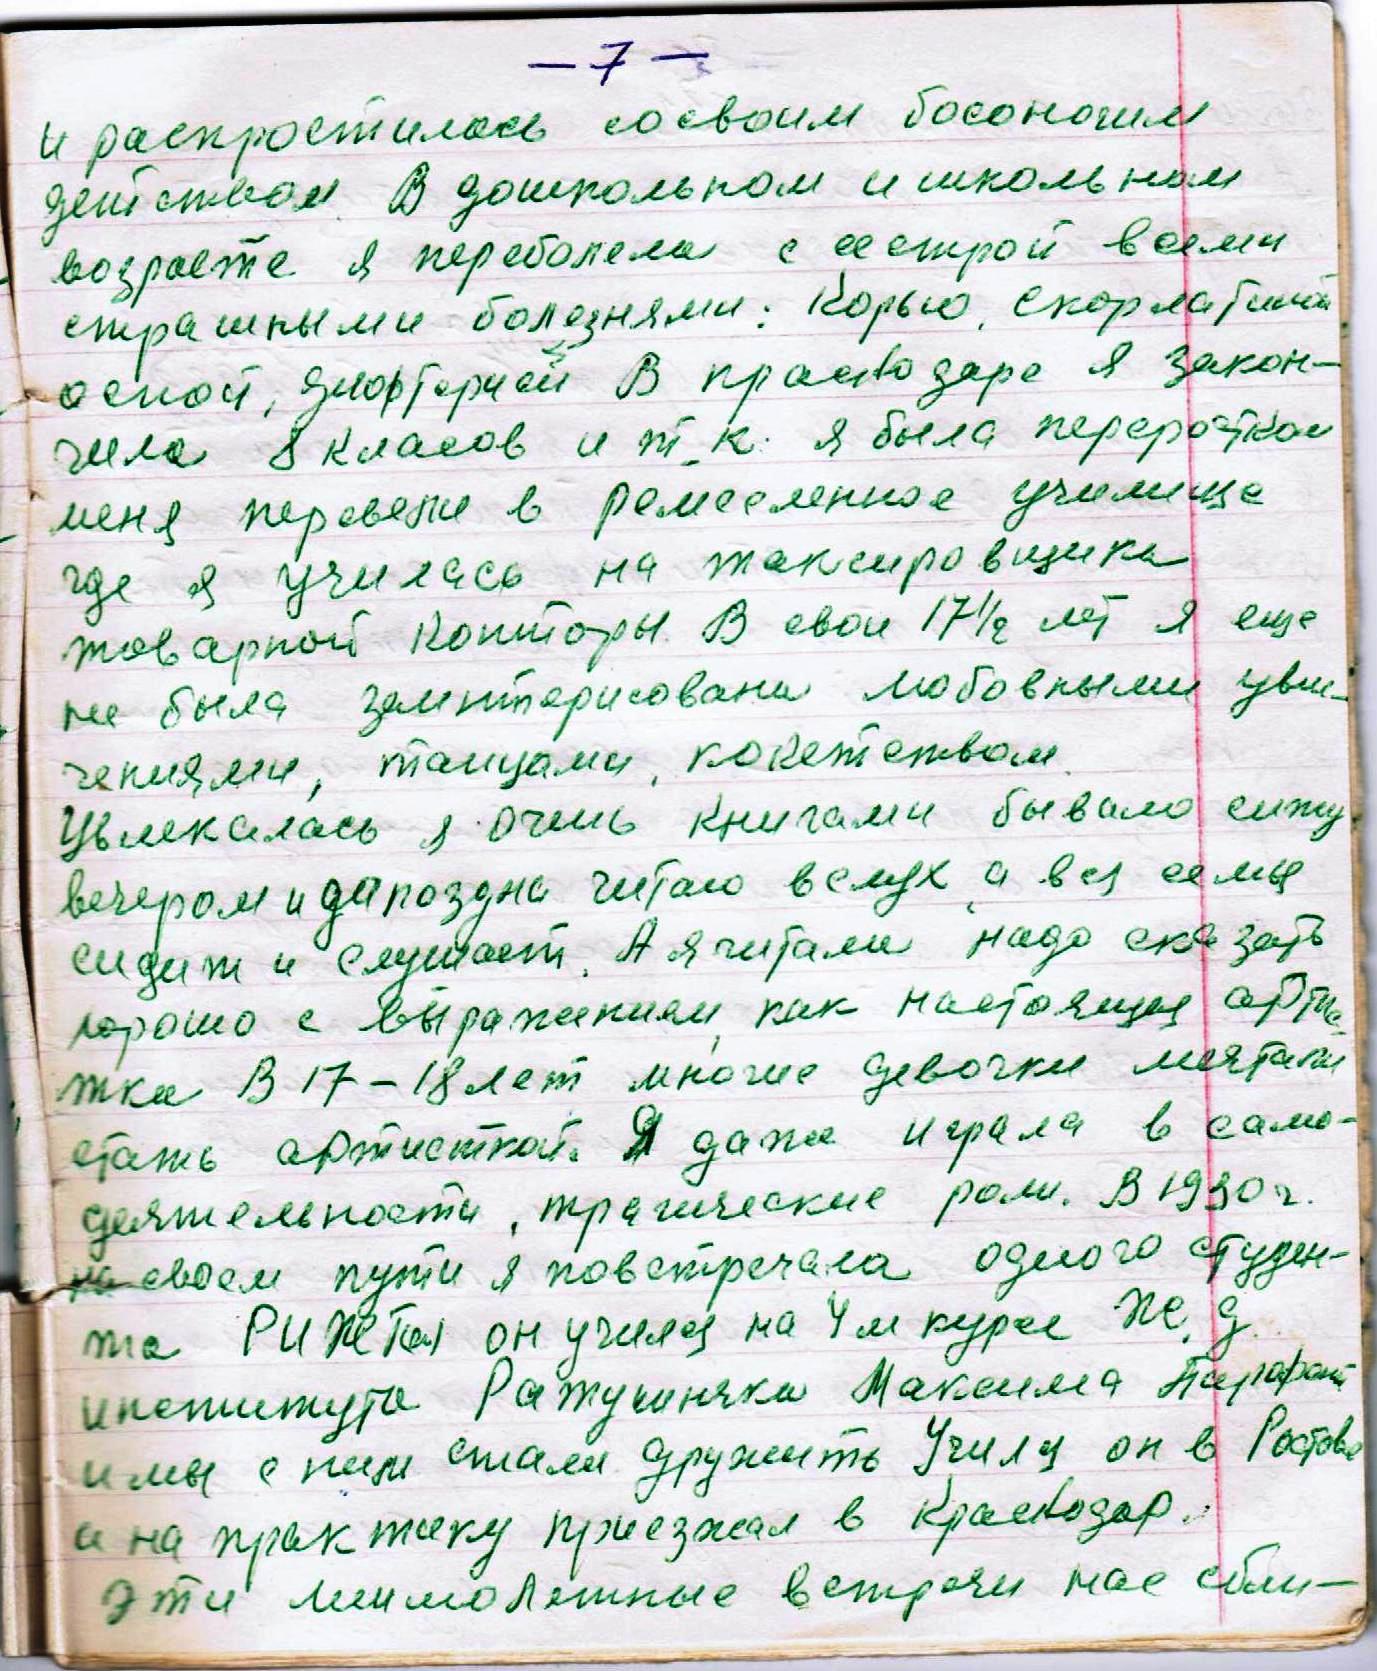 — 7 —
и распростилась со своим босоногим
детством. В дошкольном и школьном
возрасте я переболела с сестрой всеми
страшными болезнями: Корью, скарлатиной
оспой, дифтерией В краснодаре я закон-
чила 8 класов и т.к. я была переростком
меня перевели в ремесленное училище
где я училась на таксировщика
товарной конторы. В свои 17½ лет я еще
не была заинтерисована любовными увле-
чениями, танцами, кокетством.
Увлекалась я очень книгами бывало сижу
вечером и да поздна читаю вслух, а вся семья
сидит и слушает. А я читала надо сказать
хорошо с выражением, как настоящая артис-
тка В 17 – 18 лет многие девочки мечтали
стать артисткой. Я даже играла в само-
деятельности, трагические роли. В 1930 г.
на своем пути я повстречала одного студен-
та РИЖТа он учился на 4м курсе Ж.д.
института Максима
и мы с ним стали дружить Училя он в Ростове
а на практику приезжал в Краснодар.
Эти мимолетные встречи нас сбли-